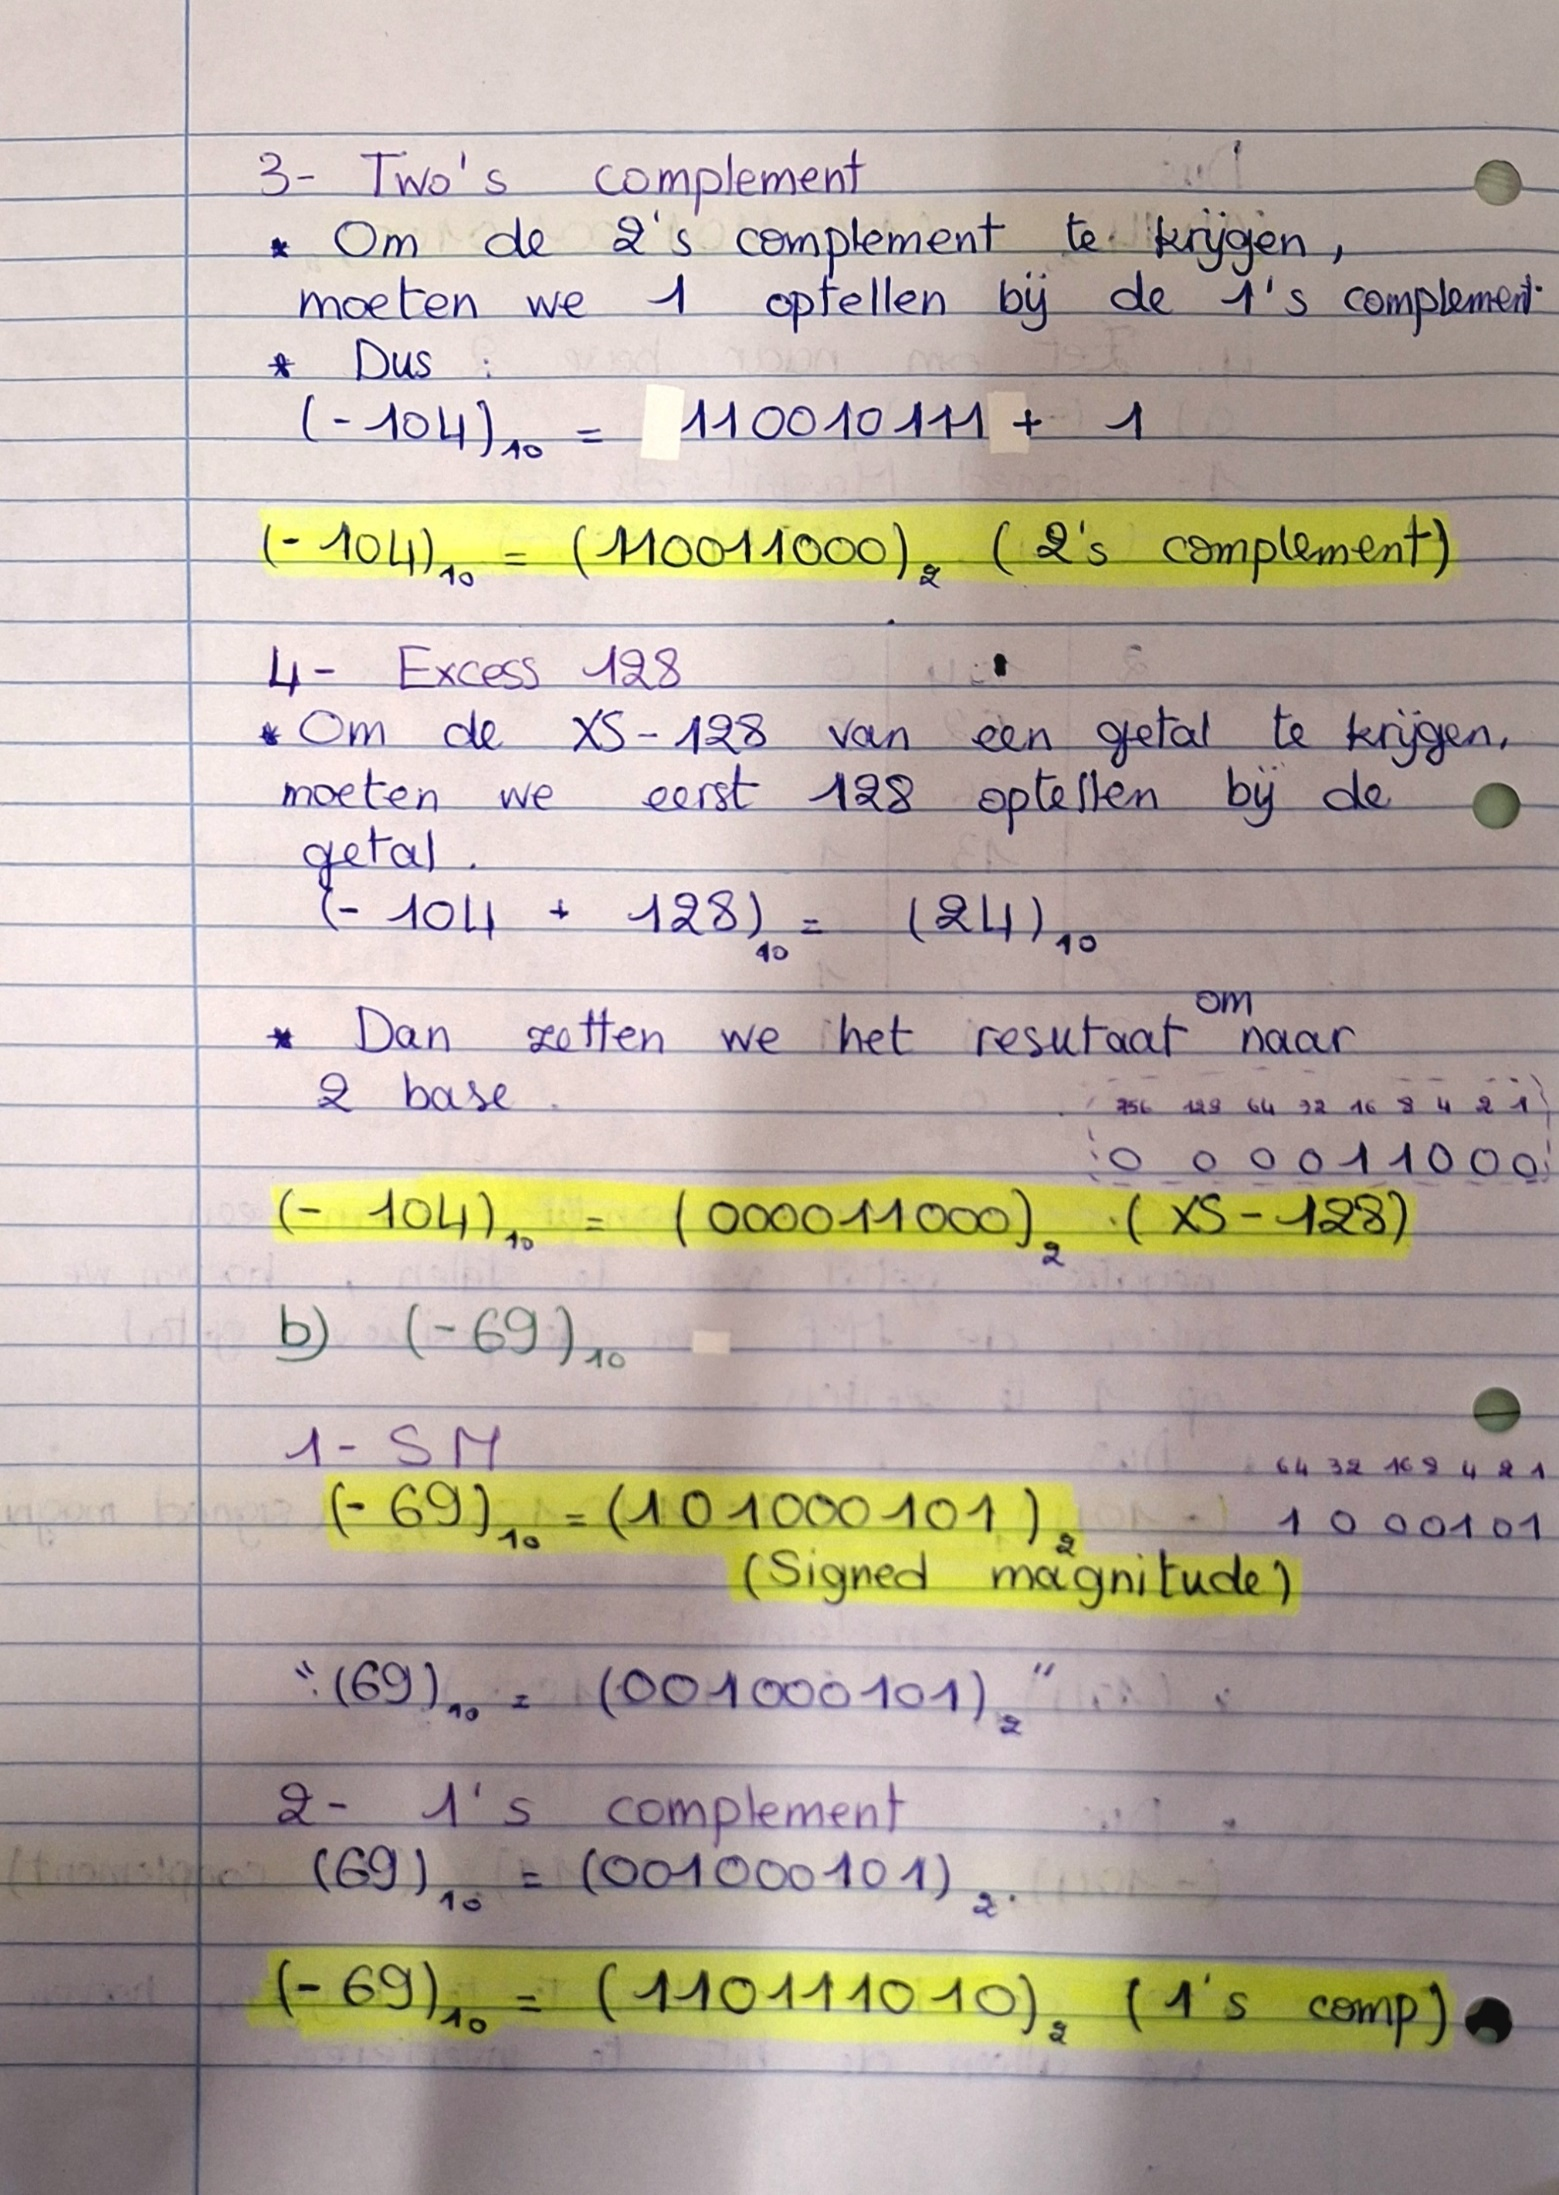 3- Two's complement
* Om de 2's complement te krijgen,
moeten we 1 optellen bij de 1's complement.
* Dus :
(-104)₁₀ = 110010111 + 1
(-104)₁₀ = (110011000)₂ (2's complement)
4- Excess 128
* Om de XS-128 van een getal te krijgen,
moeten we eerst 128 optellen bij de
getal.
(-104 + 128)₁₀ = (24)₁₀
* Dan zetten we het resutaat om naar
2 base.
256 128 64 32 16 8 4 2 1
0 0 0 0 1 1 0 0 0
(-104)₁₀ = (000011000)₂ (XS-128)
b) (-69)₁₀
1- SM
64 32 16 8 4 2 1
(-69)₁₀ = (101000101)₂
1 0 0 0 1 0 1
(Signed magnitude)
": (69)₁₀ = (001000101)₂"
2- 1's complement
(69)₁₀ = (001000101)₂.
(-69)₁₀ = (110111010)₂ (1's comp)